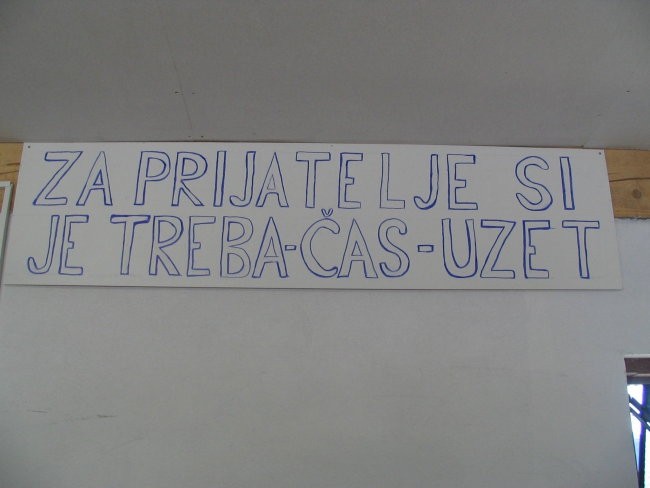 ZA PRIJATELJE SI
JE TREBA-ČAS-UZET